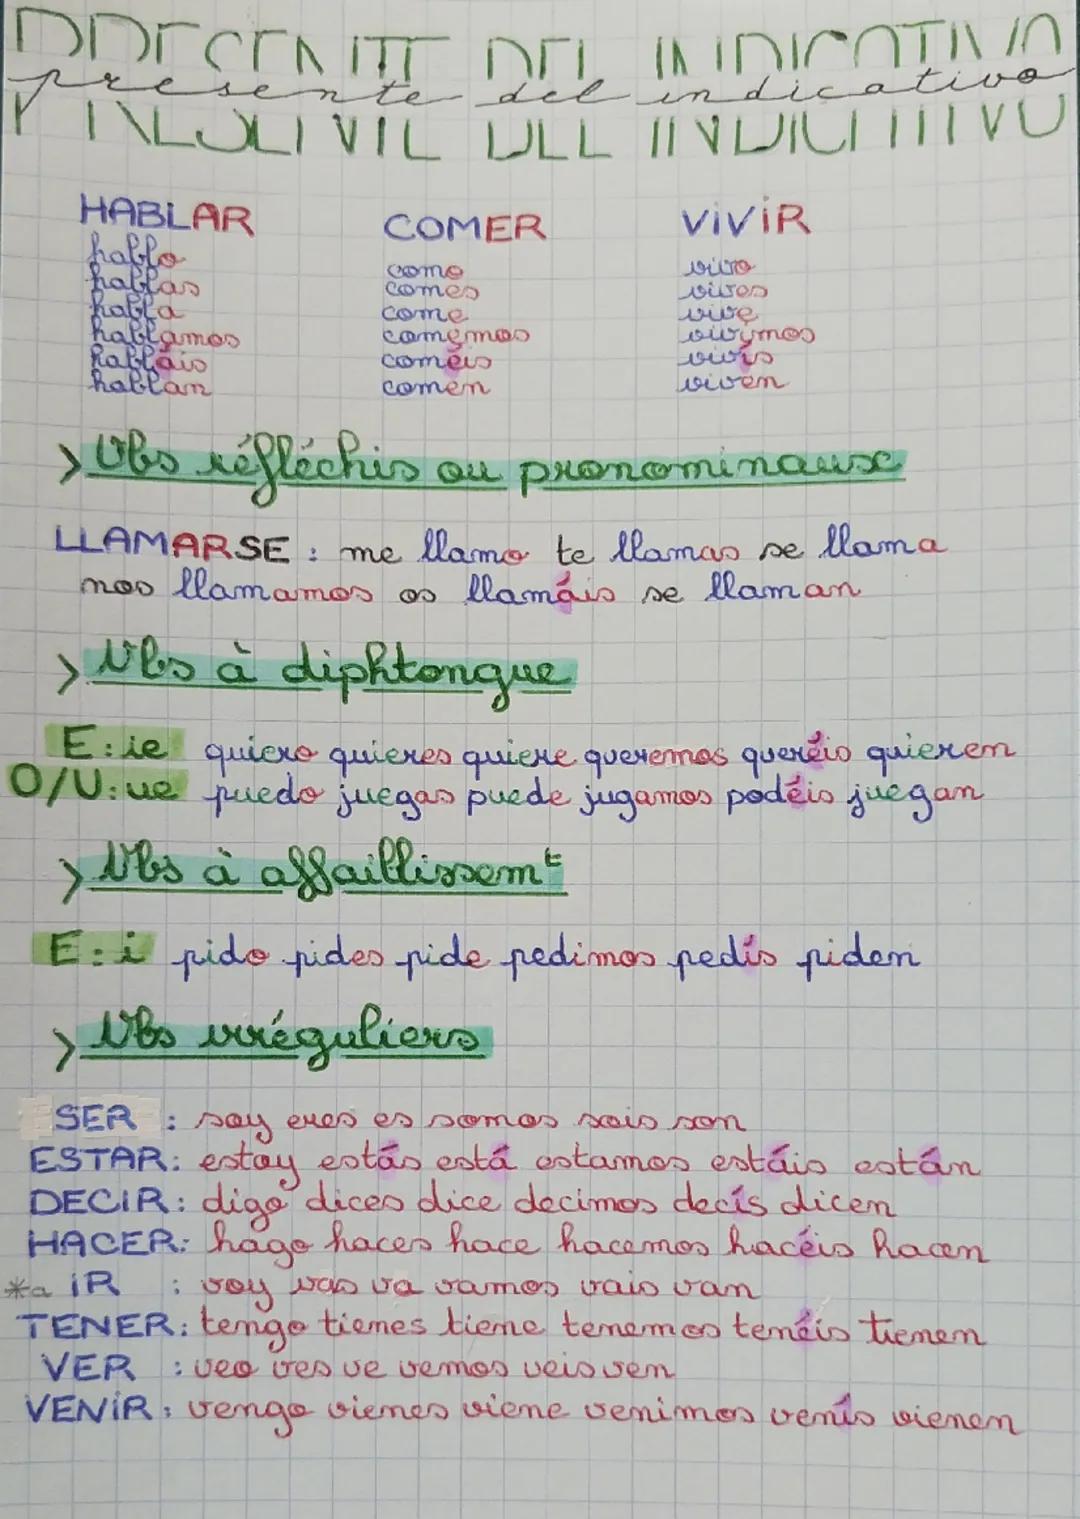 PRESENTE DEL INDICATIVO
presente del indicativo
HABLAR
hablo
hablas
habla
hablamos
habláis
hablan
COMER
como
comes
come
comemos
coméis
comen
ViViR
vivo
vives
vive
vivimos
vivís
viven
> Vbs réfléchis ou pronominaux
LLAMARSE : me llamo te llamas se llama
nos llamamos os llamáis se llaman
> Vbs à diphtongue
E: ie quiero quieres quiere queremos queréis quieren
O/U: ue puedo juegas puede jugamos podéis juegan
> Vbs à affaillissemt
E: i pido pides pide pedimos pedís piden
> Vbs irréguliers
SER : soy eres es somos sois son
ESTAR: estoy estás está estamos estáis están
DECiR: digo dices dice decimos decís dicen
HACER: hago haces hace hacemos hacéis hacen
*a iR : voy vas va vamos vais van
TENER: tengo tienes tiene tenemos tenéis tienen
VER : veo ves ve vemos veis ven
VENiR: vengo vienes viene venimos venís vienen